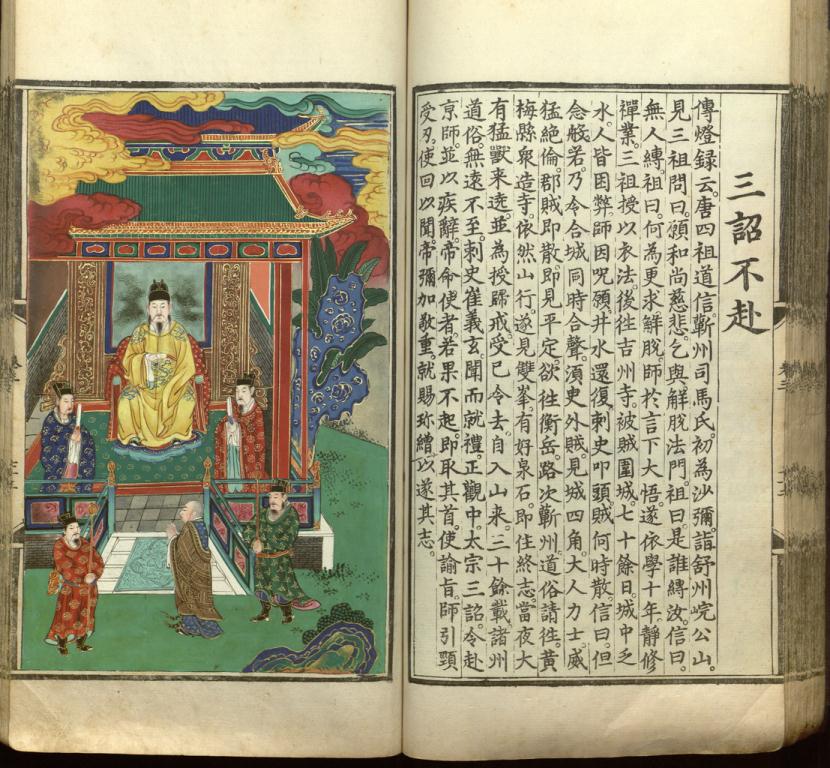 三詔不赴
傳燈錄云。唐四祖道信。蘄州司馬氏。初為沙彌。詣舒州皖公山。
見三祖問曰。願和尚慈悲。乞與解脫法門。祖曰。是誰縛汝。信曰。
無人縛。祖曰。何為更求解脫。師於言下大悟。遂依學十年。靜修
禪業。三祖授以衣法。後往吉州寺。被賊圍城。七十餘日。城中乏
水。人皆困弊。師因咒願。井水還復。刺史叩頭。賊何時散。信曰。但
念般若。乃令合城同時合聲。須臾外賊見城四角。大人力士威
猛絕倫。郡賊即散。即見平定。欲往衡岳。路次蘄州。道俗請往黃
梅縣眾造寺。依然山行。遂見雙峯。有好泉石。即住終志。當夜大
有猛獸來遶。並為授歸戒。受已令去。自入山來。三十餘載。諸州
道俗。無遠不至。刺史崔義玄。聞而就禮。正觀中。太宗三詔。令赴
京師。並以疾辭。帝命使者。若果不起。即取其首。使諭旨。師引頸
受刃。使回以聞。帝彌加敬重。就賜珍繒。以遂其志。